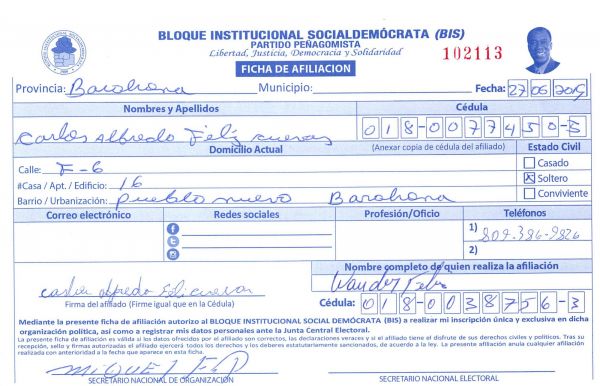 BLOQUE INSTITUCIONAL SOCIALDEMÓCRATA (BIS)
PARTIDO PEÑAGOMISTA
Libertad, Justicia, Democracia y Solidaridad
102113
FICHA DE AFILIACION
Provincia: Barahona Municipio: Fecha: 27 06 2019
Nombres y Apellidos Cédula
Carlos Alfredo Feliz Cuevas 018-0077450-5
Domicilio Actual (Anexar copia de cédula del afiliado) Estado Civil
Calle: F-6 Casado
#Casa / Apt. / Edificio: 16 Soltero
Barrio / Urbanización: Pueblo nuevo Barahona Conviviente
Correo electrónico Redes sociales Profesión/Oficio Teléfonos
1) 809-386-9826
2)
Nombre completo de quien realiza la afiliación
Carlos Alfredo Feliz Cuevas Wander Feliz
Firma del afiliado (Firme igual que en la Cédula) Cédula: 018-0038756-3
Mediante la presente ficha de afiliación autorizo al BLOQUE INSTITUCIONAL SOCIAL DEMÓCRATA (BIS) a realizar mi inscripción única y exclusiva en dicha
organización política, así como a registrar mis datos personales ante la Junta Central Electoral.
La presente ficha de afiliación es válida a los datos ofrecidos por el afiliado son correctos, las declaraciones veraces y si el afiliado tiene el disfrute de sus derechos civiles y políticos. Tras su
recepción, sello y firmas autorizadas el afiliado ejercerá todos los derechos y los deberes estatutariamente sancionados, de acuerdo a la ley. La presente afiliación anula cualquier afiliación
realizada con anterioridad a la fecha que aparece en esta ficha.
MIQUEL
SECRETARIO NACIONAL DE ORGANIZACIÓN SECRETARIO NACIONAL ELECTORAL